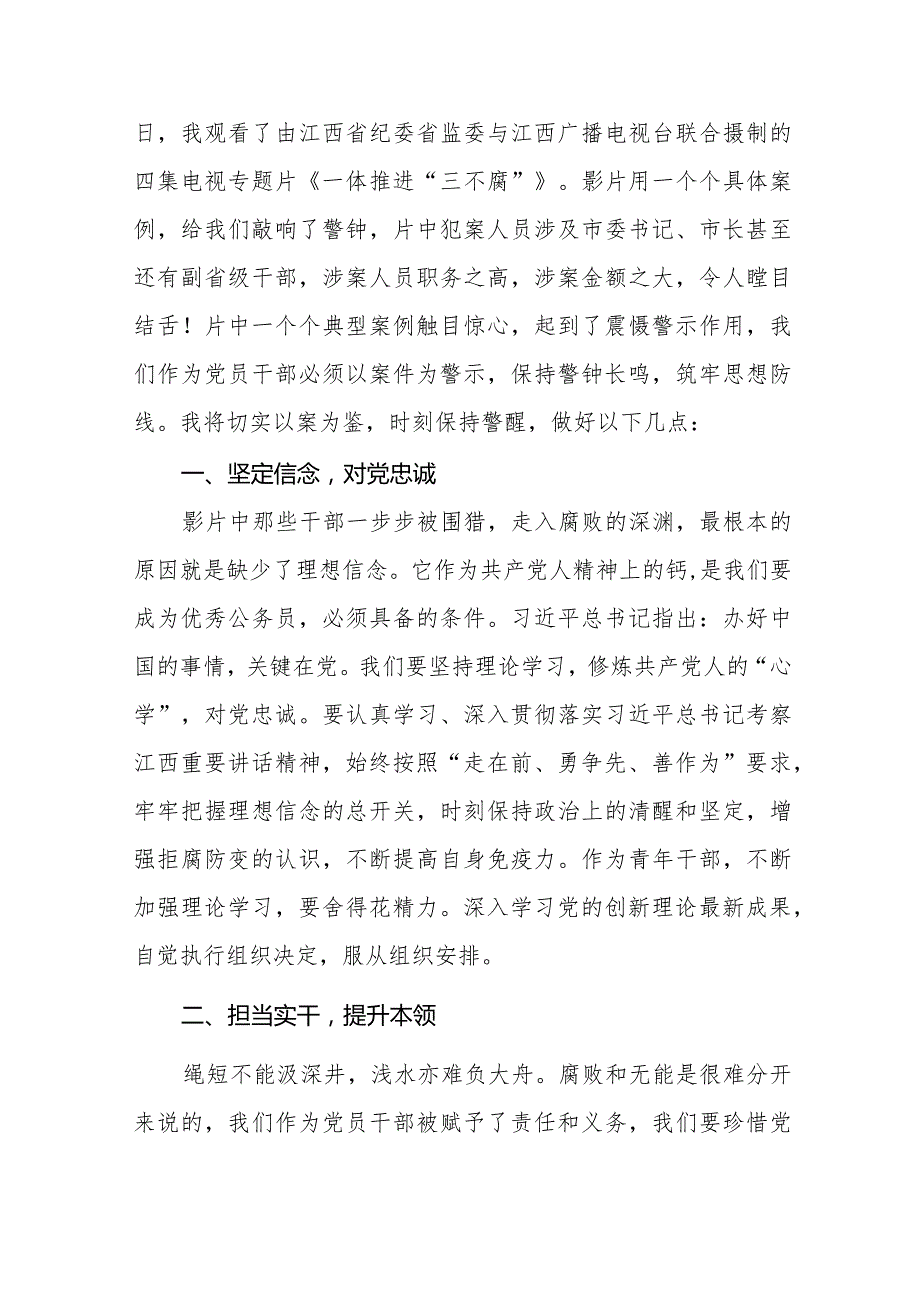 日，我观看了由江西省纪委省监委与江西广播电视台联合摄制的
四集电视专题片《一体推进“三不腐”》。影片用一个个具体案
例，给我们敲响了警钟，片中犯案人员涉及市委书记、市长甚至
还有副省级干部，涉案人员职务之高，涉案金额之大，令人瞠目
结舌！片中一个个典型案例触目惊心，起到了震慑警示作用，我
们作为党员干部必须以案件为警示，保持警钟长鸣，筑牢思想防
线。我将切实以案为鉴，时刻保持警醒，做好以下几点：
一、坚定信念，对党忠诚
影片中那些干部一步步被围猎，走入腐败的深渊，最根本的
原因就是缺少了理想信念。它作为共产党人精神上的钙,是我们要
成为优秀公务员，必须具备的条件。习近平总书记指出：办好中
国的事情，关键在党。我们要坚持理论学习，修炼共产党人的“心
学”，对党忠诚。要认真学习、深入贯彻落实习近平总书记考察
江西重要讲话精神，始终按照“走在前、勇争先、善作为”要求，
牢牢把握理想信念的总开关，时刻保持政治上的清醒和坚定，增
强拒腐防变的认识，不断提高自身免疫力。作为青年干部，不断
加强理论学习，要舍得花精力。深入学习党的创新理论最新成果，
自觉执行组织决定，服从组织安排。
二、担当实干，提升本领
绳短不能汲深井，浅水亦难负大舟。腐败和无能是很难分开
来说的，我们作为党员干部被赋予了责任和义务，我们要珍惜党